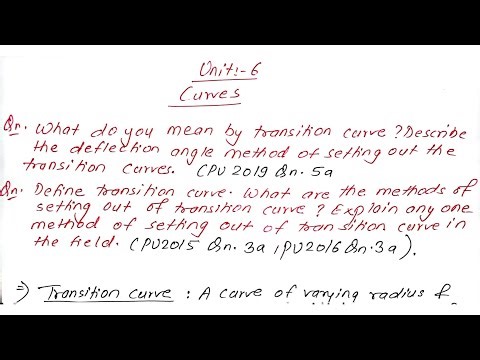 Unit:-6
Curves
Qn. What do you mean by transition curve? Describe
the deflection angle method of setting out the
transition curves. (PU 2019 Qn. 5a
Qn. Define transition curve. What are the methods of
setting out of transition curve? Explain any one
method of setting out of transition curve in
the field. (PU2015 Qn. 3a, PU2016 Qn.3a).
=) Transition curve : A curve of varying radius &